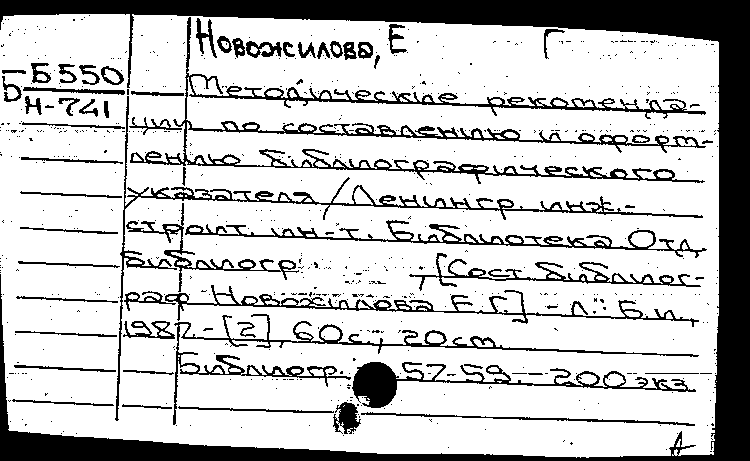 Новожилова, Е Г
Б Б550
Н-741
Методические рекоменда-
ции по составлению и оформ-
лению библиографического
указателя / Ленингр. инж.-
строит. ин-т. Библиотека Отд.
библиогр. , [Сост. библиог-
раф Новожилова Е.Г.] - Л.: Б.и.,
1987. - [2], 60с.; 20см.
Библиогр. 57-59. - 200 экз
А